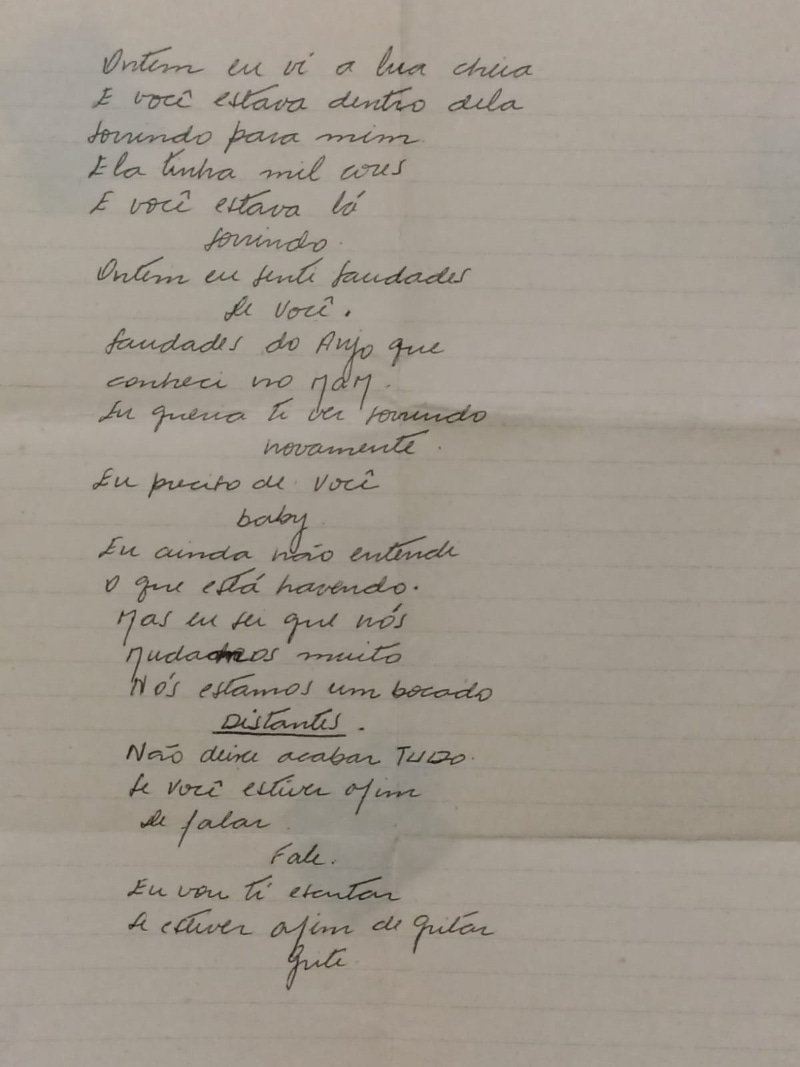 Ontem eu vi a lua cheia
E você estava dentro dela
sorrindo para mim.
Ela tinha mil cores
E você estava lá
sorrindo.
Ontem eu senti saudades
de você.
saudades do Anjo que
conheci no MAM.
Eu queria ti ver sorrindo
novamente.
Eu preciso de você
baby
Eu ainda não entendi
o que está havendo.
Mas eu sei que nós
Mudamos muito
Nós estamos um bocado
Distantes.
Não deixe acabar TUDO.
se você estiver afim
de falar
Fale.
Eu vou ti escutar
se estiver afim de gritar
grite.